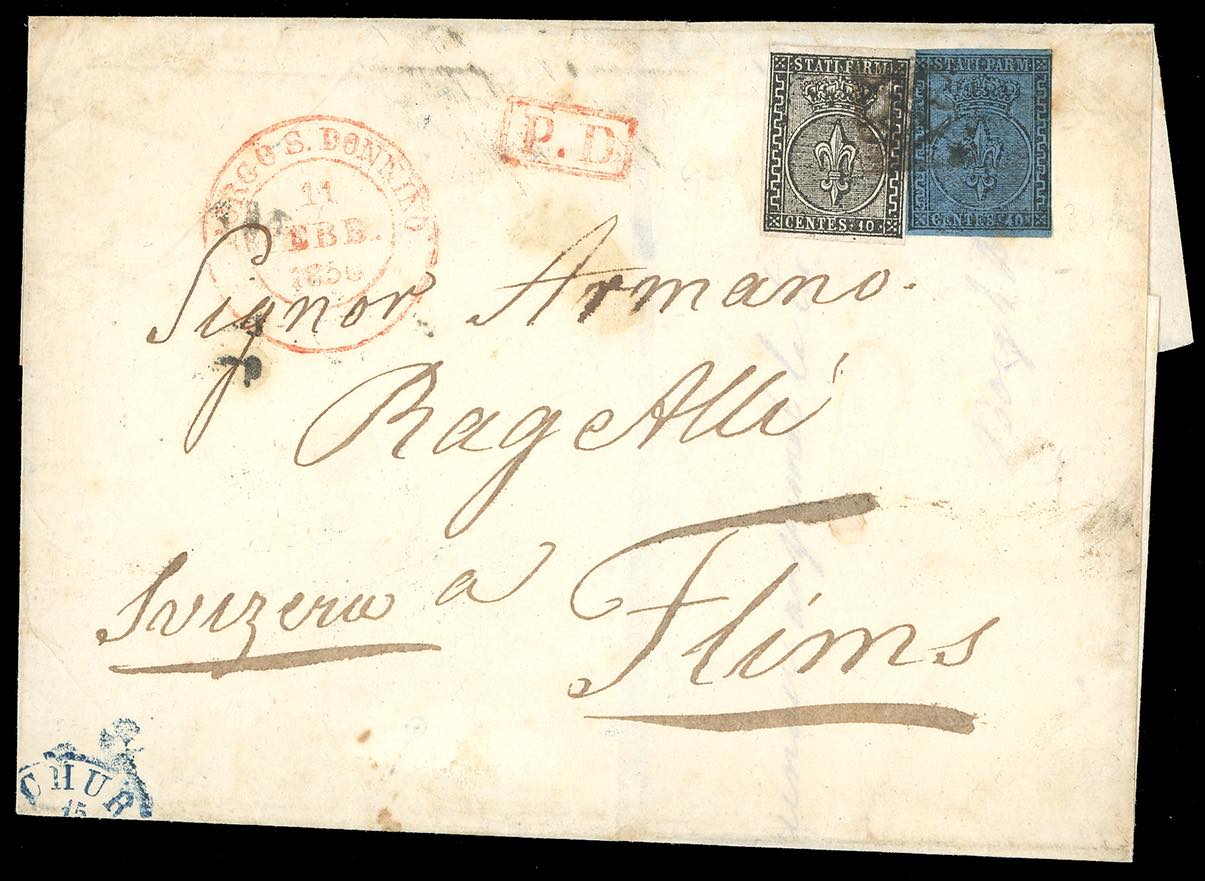 STATI PARM
CENTES·10
STATI PARM
CENTES·40
P.D.
BORGO S. DONNINO
11
FEBB.
Signor Armano.
Ragettli
Svizera a Flims
CHUR
15